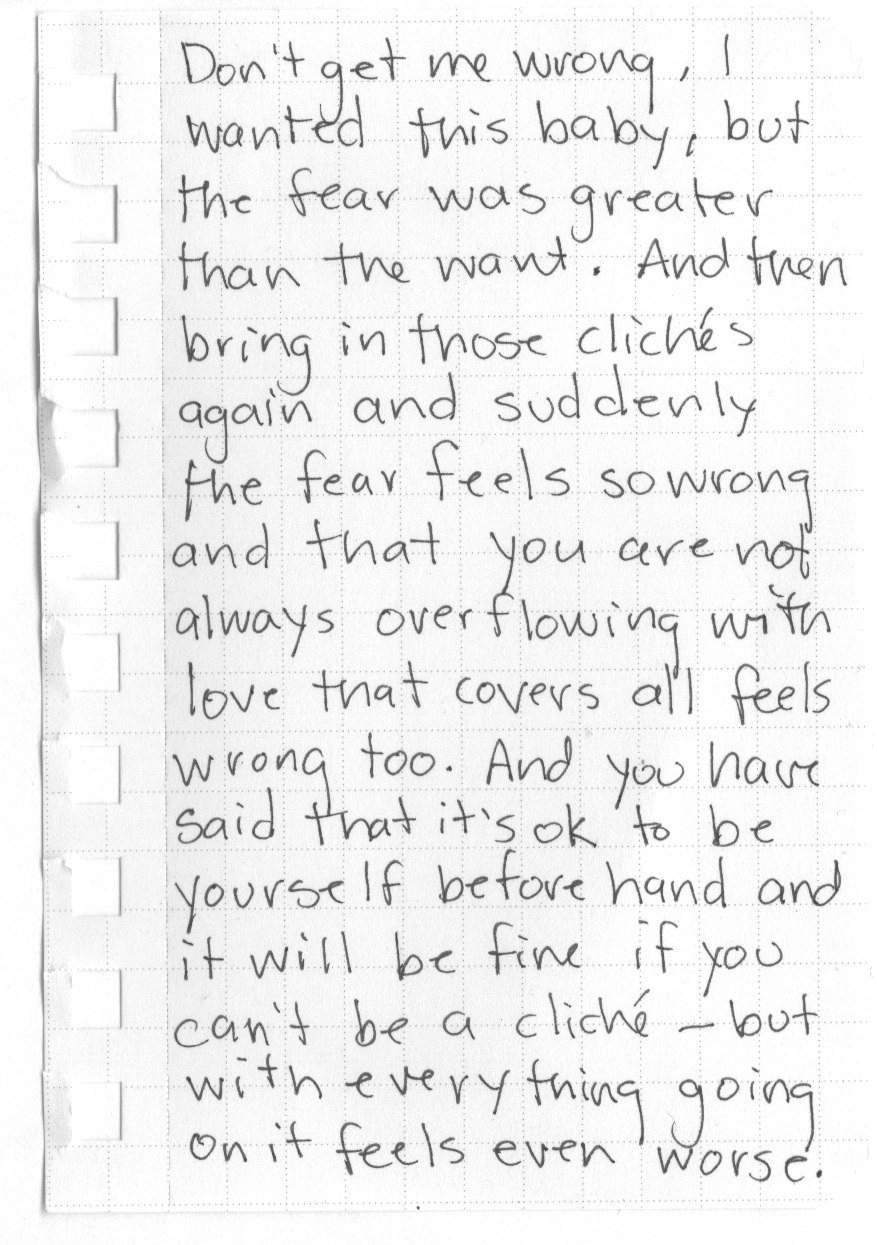 Don't get me wrong, I
wanted this baby, but
the fear was greater
than the want. And then
bring in those clichés
again and suddenly
the fear feels so wrong
and that you are not
always overflowing with
love that covers all feels
wrong too. And you have
said that it's ok to be
yourself before hand and
it will be fine if you
can't be a cliché – but
with everything going
on it feels even worse.